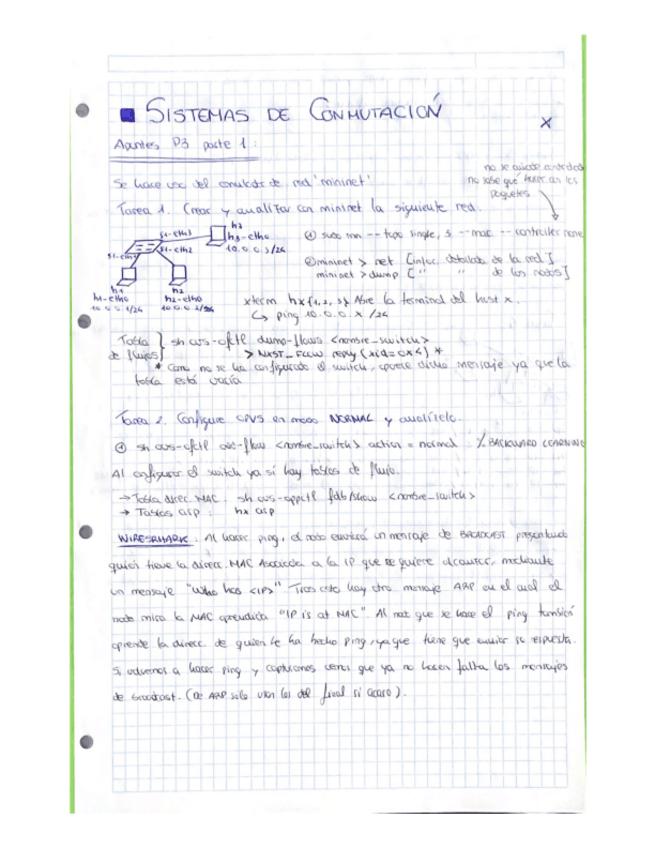 SISTEMAS DE CONMUTACIÓN
Apuntes P3 parte 1:
no se quiere controlador
no sabe qué hacer con los
paquetes
Se hace uso del emulador de red 'mininet'
Tarea 1. Crear y analizar con mininet la siguiente red.
h3
h3-eth0
10.0.0.3/24
s1-eth3
s1-eth2
s1-eth1
h1
h1-eth0
10.0.0.1/24
h2
h2-eth0
10.0.0.2/24
① sudo mn --topo single, 3 --mac --controller none
② mininet > net [infor. detallada de la red]
mininet > dump [" " de los nodos]
xterm hx {1, 2, 3} Abre la terminal del host x.
↳ ping 10.0.0.x /24
Tabla de flujos } sh ovs-ofctl dump-flows <nombre_switch>
> NXST_FLOW reply (xid=0x4) *
* Como no se ha configurado el switch, aparece dicho mensaje ya que la
tabla está vacía
Tarea 2. Configure OPVS en modo NORMAL y analícelo.
① sh ovs-ofctl add-flow <nombre_switch> action = normal % BACKWARD LEARNING
Al configurar el switch ya sí hay tablas de flujo.
→ Tabla direc. MAC: sh ovs-appctl fdb/show <nombre_switch>
→ Tablas arp: hx arp
WIRESHARK: Al hacer ping, el nodo enviará un mensaje de BROADCAST preguntando
quien tiene la direcc. MAC Asociada a la IP que se quiere alcanzar, mediante
un mensaje "Who has <IP>" Tras esto hay otro mensaje ARP en el cual el
nodo mira la MAC aprendida "IP is at MAC" Al nodo que se hace el ping también
aprende la direcc. de quien le ha hecho ping, ya que tiene que enviar su respuesta.
Si volvemos a hacer ping y capturamos vemos que ya no hacen falta los mensajes
de broadcast. (De ARP solo van los del final si acaso).